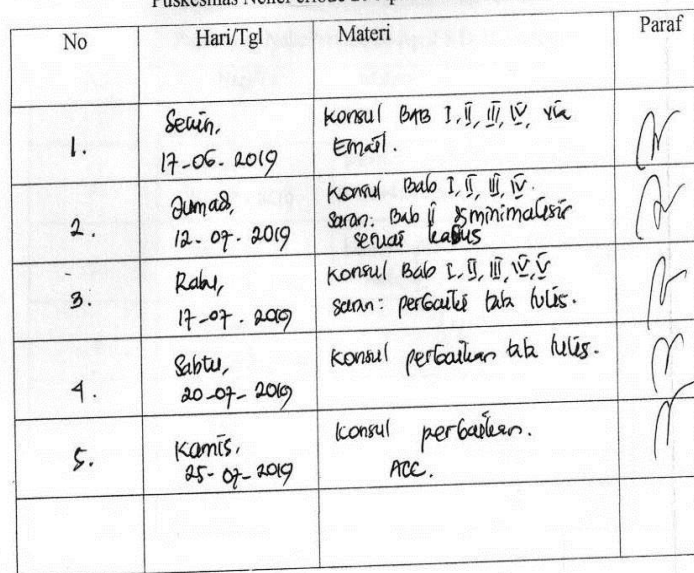 No Hari/Tgl Materi Paraf
1. Senin, 17-06-2019 Konsul BAB I, II, III, IV, via
Email.
2. Jumad, 12-07-2019 Konsul Bab I, II, III, IV.
Saran: Bab II diminimalisir
sesuai kasus
3. Rabu, 17-07-2019 Konsul Bab I, II, III, IV, V
saran: perbaiki tata tulis.
4. Sabtu, 20-07-2019 Konsul perbaikan tata tulis.
5. Kamis, 25-07-2019 Konsul perbaikan.
ACC.